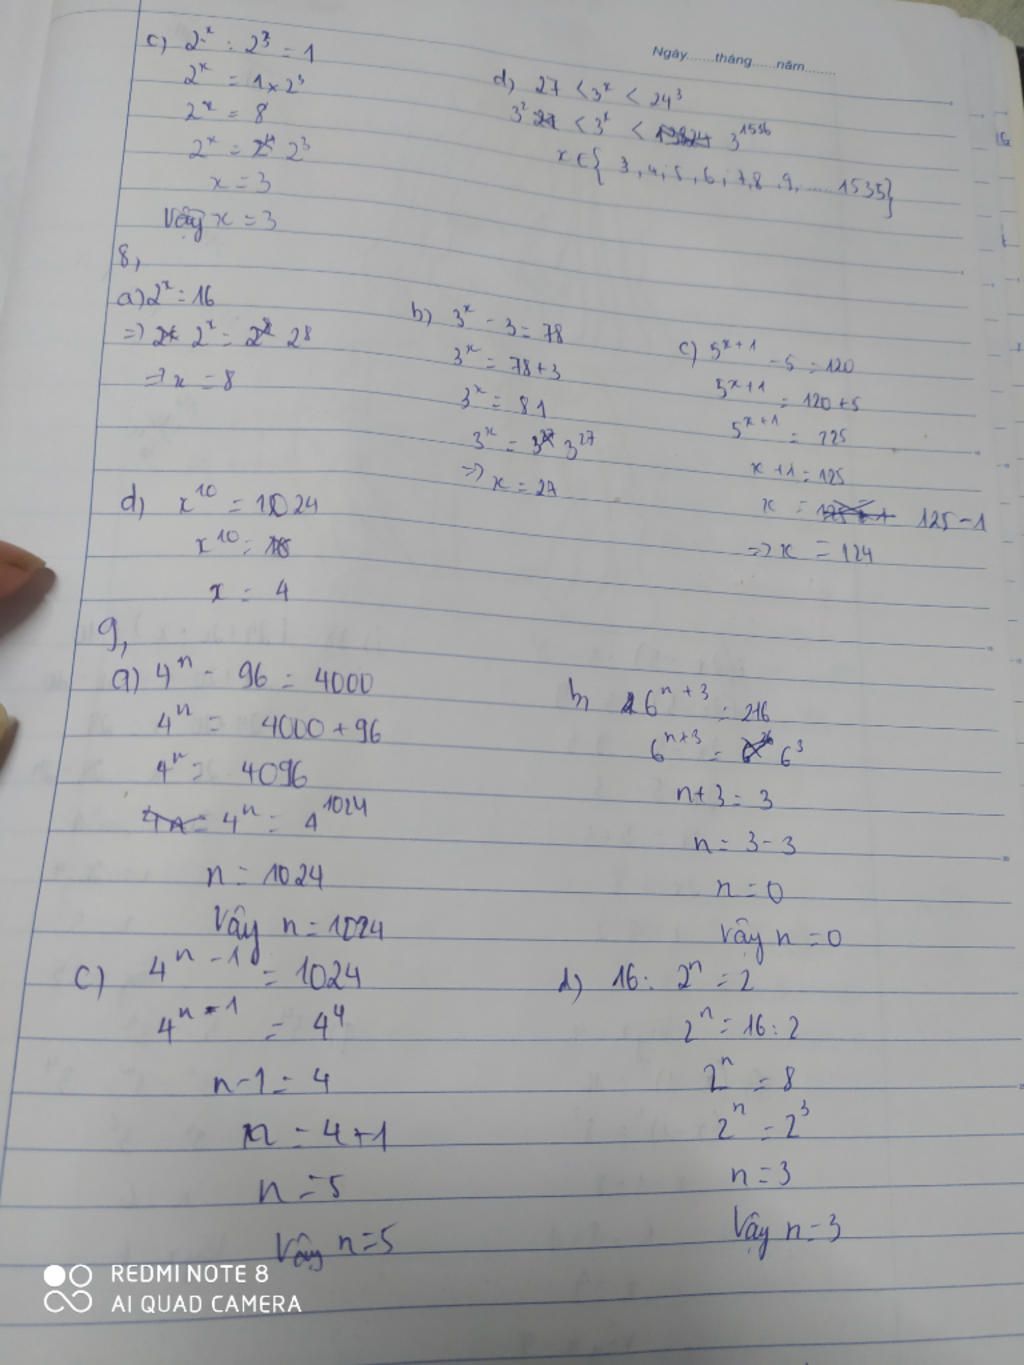 Ngày......tháng......năm.......
c) 2^x : 2^3 = 1
2^x = 1 x 2^3
2^x = 8
2^x = 2^3
x = 3
Vậy x = 3
d, 27 < 3^x < 24^3
3^2 < 3^x < 3^1536
x ∈ { 3, 4, 5, 6, 7, 8, 9, ..... 1535}
8,
a) 2^x = 16
=> 2^x = 2^8
=> x = 8
b) 3^x - 3 = 78
3^x = 78 + 3
3^x = 81
3^x = 3^27
=> x = 27
c) 5^x+1 - 5 = 120
5^x+1 = 120 + 5
5^x+1 = 125
x + 1 = 125
x = 125 - 1
=> x = 124
d) x^10 = 1024
x^10 =
x = 4
9,
a) 4^n - 96 = 4000
4^n = 4000 + 96
4^n = 4096
4^n = 4^1024
n = 1024
Vậy n = 1024
b, 6^n+3 = 216
6^n+3 = 6^3
n + 3 = 3
n = 3 - 3
n = 0
Vậy n = 0
c) 4^n-1 = 1024
4^n-1 = 4^4
n - 1 = 4
n = 4 + 1
n = 5
Vậy n = 5
d) 16 : 2^n = 2
2^n = 16 : 2
2^n = 8
2^n = 2^3
n = 3
Vậy n = 3
REDMI NOTE 8
AI QUAD CAMERA